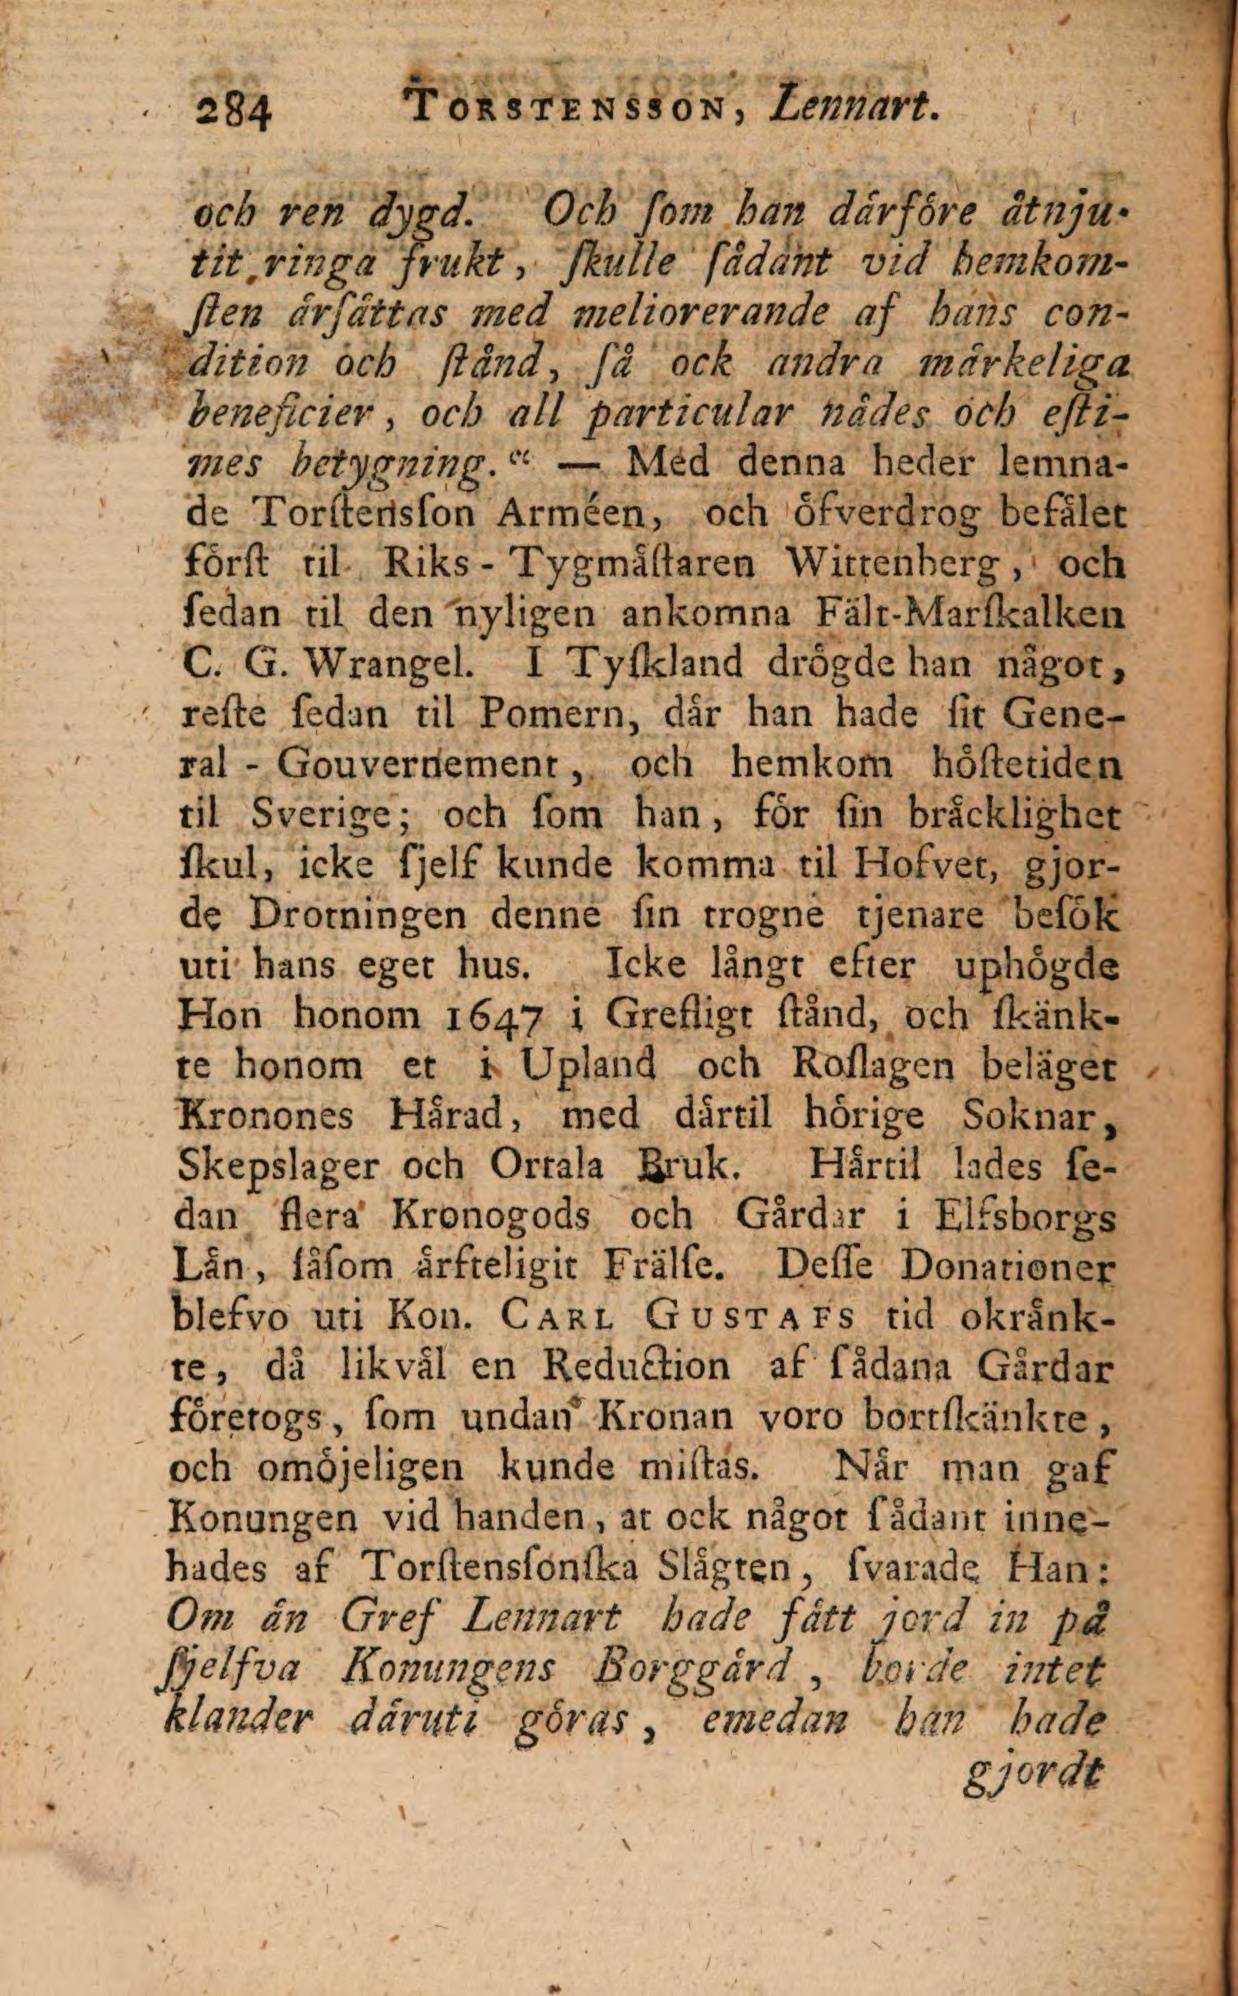 284 TORSTENSSON, Lennart.
och ren dygd. Och ſom han dårfőre åtnju-
tit ringa frukt, ſkulle ſådant vid hemkom-
ſten årſåttas med meliorerande af hans con-
dition och ſtånd, ſå ock andra mårkeliga
beneficier, och all particular nådes och eſti-
mes betygning.“ — Med denna heder lemna-
de Torſtensſon Arméen, och ófverdrog befålet
fórſt til Riks-Tygmåſtaren Wittenberg, och
ſedan til den nyligen ankomna Fält-Marſkalken
C. G. Wrangel. I Tyſkland drógde han något,
reſte ſedan til Pomern, dår han hade ſit Gene-
ral-Gouvernement, och hemkom hóſtetiden
til Sverige; och ſom han, fór ſin bråcklighet
ſkul, icke ſjelf kunde komma til Hofvet, gjor-
de Drotningen denne ſin trogne tjenare beſók
uti hans eget hus. Icke långt efter uphógde
Hon honom 1647 i Grefligt ſtånd, och ſkänk-
te honom et i Upland och Roſlagen beläget
Kronones Hårad, med dårtil hórige Soknar,
Skepslager och Ortala Bruk. Hårtil lades ſe-
dan flera Kronogods och Gårdar i Elfsborgs
Lån, ſåſom årfteligit Frälſe. Deſſe Donationer
blefvo uti Kon. CARL GUSTAFS tid okrånk-
te, då likvål en Reduction af ſådana Gårdar
fóretogs, ſom undan Kronan voro bortſkänkte,
och omójeligen kunde miſtas. Når man gaf
Konungen vid handen, at ock något ſådant inne-
hades af Torſtensſonſka Slågten, ſvarade Han:
Om ån Gref Lennart hade fått jord in på
ſjelfva Konungens Borggård, borde intet
klander dåruti góras, emedan han hade
gjordt